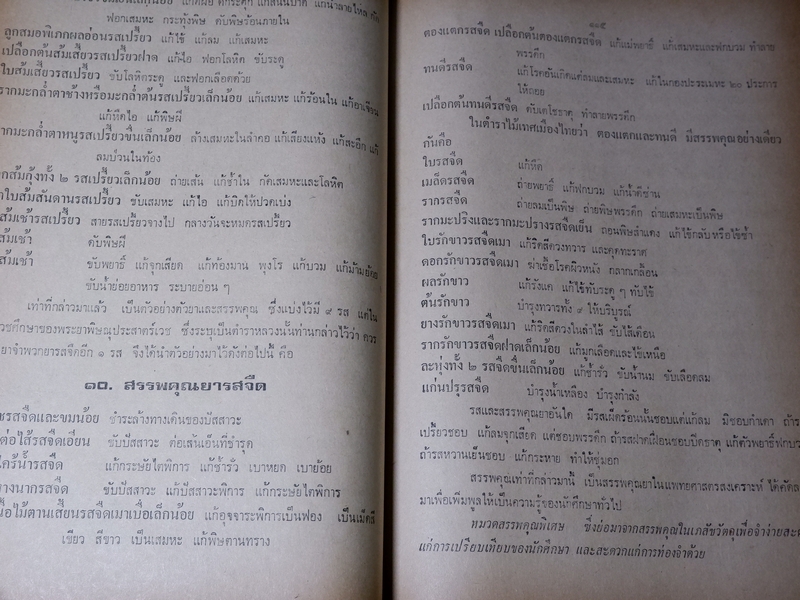 ฟอกเสมหะ กระทุ้งพิษ ดับพิษร้อนภายใน
ลูกสมอพิเภกผลอ่อนรสเปรี้ยว แก้ไข้ แก้ลม แก้เสมหะ
เปลือกต้นส้มเสี้ยวรสเปรี้ยวฝาด แก้ไอ ฟอกโลหิต ขับระดู
ใบส้มเสี้ยวรสเปรี้ยว ขับโลหิตระดู และฟอกเลือดด้วย
รากมะกล่ำตาช้างหรือมะกล่ำต้นรสเปรี้ยวเล็กน้อย แก้เสมหะ แก้ร้อนใน แก้อาเจียน
แก้หืดไอ แก้พิษฝี
รากมะกล่ำตาหนูรสเปรี้ยวขื่นเล็กน้อย ล้างเสมหะในลำคอ แก้เสียงแห้ง แก้สะอึก แก้
ลมป่วนในท้อง
กส้มกุ้งทั้ง ๒ รสเปรี้ยวเล็กน้อย ถ่ายเส้น แก้ช้ำใน กัดเสมหะและโลหิต
ใบส้มสันดานรสเปรี้ยว ขับเสมหะ แก้ไอ แก้บิดให้ปวดเบ่ง
ส้มเช้ารสเปรี้ยว สายรสเปรี้ยวจางไป กลางวันจะหมดรสเปรี้ยว
ส้มเช้า ดับพิษฝี
ส้มเช้า ขับพยาธิ์ แก้จุกเสียด แก้ท้องมาน พุงโร แก้บวม แก้ม้ามย้อย
ขับน้ำย่อยอาหาร ระบายอ่อน ๆ
เท่าที่กล่าวมาแล้ว เป็นตัวอย่างตัวยาและสรรพคุณ ซึ่งแบ่งไว้มี ๙ รส แต่ใน
เวชศึกษาของพระยาพิษณุประสาตร์เวช ซึ่งระบุเป็นตำราหลวงนั้นท่านกล่าวไว้ว่า ควร
ยาจำพวกยารสจืดอีก ๑ รส จึงได้นำตัวอย่างมาไว้ดังต่อไปนี้ คือ
๑๐. สรรพคุณยารสจืด
รสจืดและขมน้อย ชำระล้างทางเดินของปัสสาวะ
ต่อไส้รสจืดเอียน ขับปัสสาวะ ต่อเส้นเอ็นที่ชำรุด
ใคร้น้ำรสจืด แก้กระษัยไตพิการ แก้ช้ำรั่ว เบาหยด เบาบ่อย
างนากรสจืด ขับปัสสาวะ แก้ปัสสาวะพิการ แก้กระษัยไตพิการ
นื้อไม้ตานเสี้ยนรสจืดเมาเบื่อเล็กน้อย แก้อุจจาระพิการเป็นฟอง เป็นเม็ดสี
เขียว สีขาว เป็นเสมหะ แก้พิษตานทราง
๑๑๕
ตองแตกรสจืด เปลือกต้นตองแตกรสจืด แก้แม่พยาธิ์ แก้เสมหะและฟกบวม ทำลาย
พรรดึก
ทนดีรสจืด แก้โรคอันเกิดแต่ลมและเสมหะ แก้ในกองประระเมหะ ๒๐ ประการ
ให้ถอย
เปลือกต้นทนดีรสจืด ดับเตโชธาตุ ทำลายพรรดึก
ในตำราไม้เทศเมืองไทยว่า ตองแตกและทนดี มีสรรพคุณอย่างเดียว
กันคือ
ใบรสจืด แก้หืด
เมล็ดรสจืด ถ่ายพยาธิ์ แก้ฟกบวม แก้น้ำดีซ่าน
รากรสจืด ถ่ายลมเป็นพิษ ถ่ายพิษพรรดึก ถ่ายเสมหะเป็นพิษ
รากมะปริงและรากมะปรางรสจืดเย็น ถอนพิษสำแดง แก้ไข้กลับหรือไข้ซ้ำ
ใบรักขาวรสจืดเมา แก้ริดสีดวงทวาร และคุดทะราด
ดอกรักขาวรสจืดเมา ฆ่าเชื้อโรคผิวหนัง กลากเกลื้อน
ผลรักขาว แก้รังแค แก้ไข้ทับระดู ๆ ทับไข้
ต้นรักขาว บำรุงทวารทั้ง ๙ ให้บริบูรณ์
ยางรักขาวรสจืดเมา แก้ริดสีดวงในลำไส้ ขับไส้เดือน
รากรักขาวรสจืดฝาดเล็กน้อย แก้มูกเลือดและไข้เหนือ
ละหุ่งทั้ง ๒ รสจืดขื่นเล็กน้อย แก้ช้ำรั่ว ขับน้ำนม ขับเลือดลม
แก่นปรุรสจืด บำรุงน้ำเหลือง บำรุงกำลัง
รสและสรรพคุณยาอันใด มีรสเผ็ดร้อนนั้นชอบแต่แก้ลม มิชอบกำเดา ถ้ารส
เปรี้ยวชอบ แก้ลมจุกเสียด แต่ชอบพรรดึก ถ้ารสฝาดเฝื่อนชอบปิดธาตุ แก้ตัวพยาธิ์ฟกบวม
ถ้ารสหวานเย็นชอบ แก้กระหาย ทำให้ชุ่มอก
สรรพคุณเท่าที่กล่าวมานี้ เป็นสรรพคุณยาในแพทยศาสตร์สงเคราะห์ ได้คัดล
มาเพื่อเพิ่มพูลให้เป็นความรู้ของนักศึกษาทั่วไป
หมวดสรรพคุณพิเศษ ซึ่งย่อมาจากสรรพคุณในเภสัชวัตถุเพื่อจำง่ายสะด
แก่การเปรียบเทียบของนักศึกษา และสะดวกแก่การท่องจำด้วย